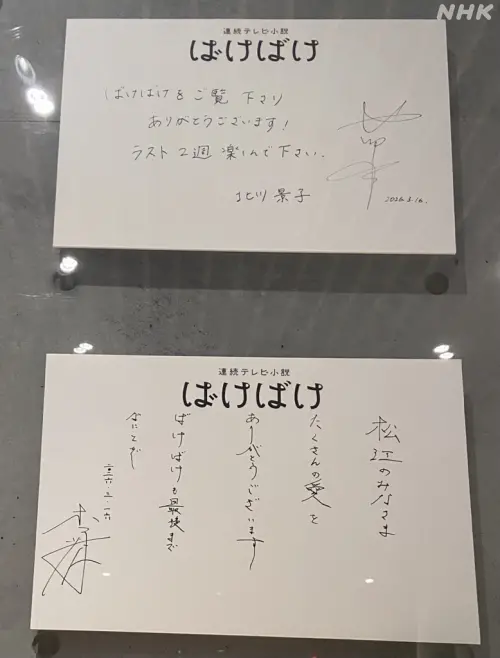 NHK
連続テレビ小説
ばけばけ
ばけばけをご覧 下さり
ありがとうございます!
ラスト2週 楽しんで下さい。
北川 景子
2026.3.16.
連続テレビ小説
ばけばけ
松江のみなさま
たくさんの愛を
ありがとうございます
ばけばけも最後まで
なにとぞ
二〇二六・三・一六